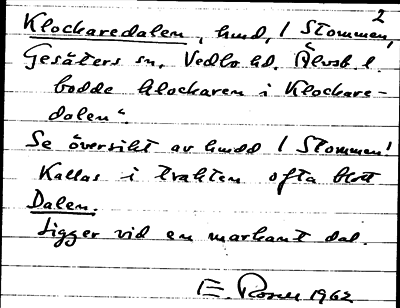 2
Klockaredalen, hmd, / Stommen,
Gesäters sn, Vedbo hd. Älvsb. l.
bodde klockaren i Klockare-
dalen".
Se översikt av hmdd / Stommen!
Kallas i trakten ofta blott
Dalen.
Ligger vid en markant dal.
E. Rosell 1962